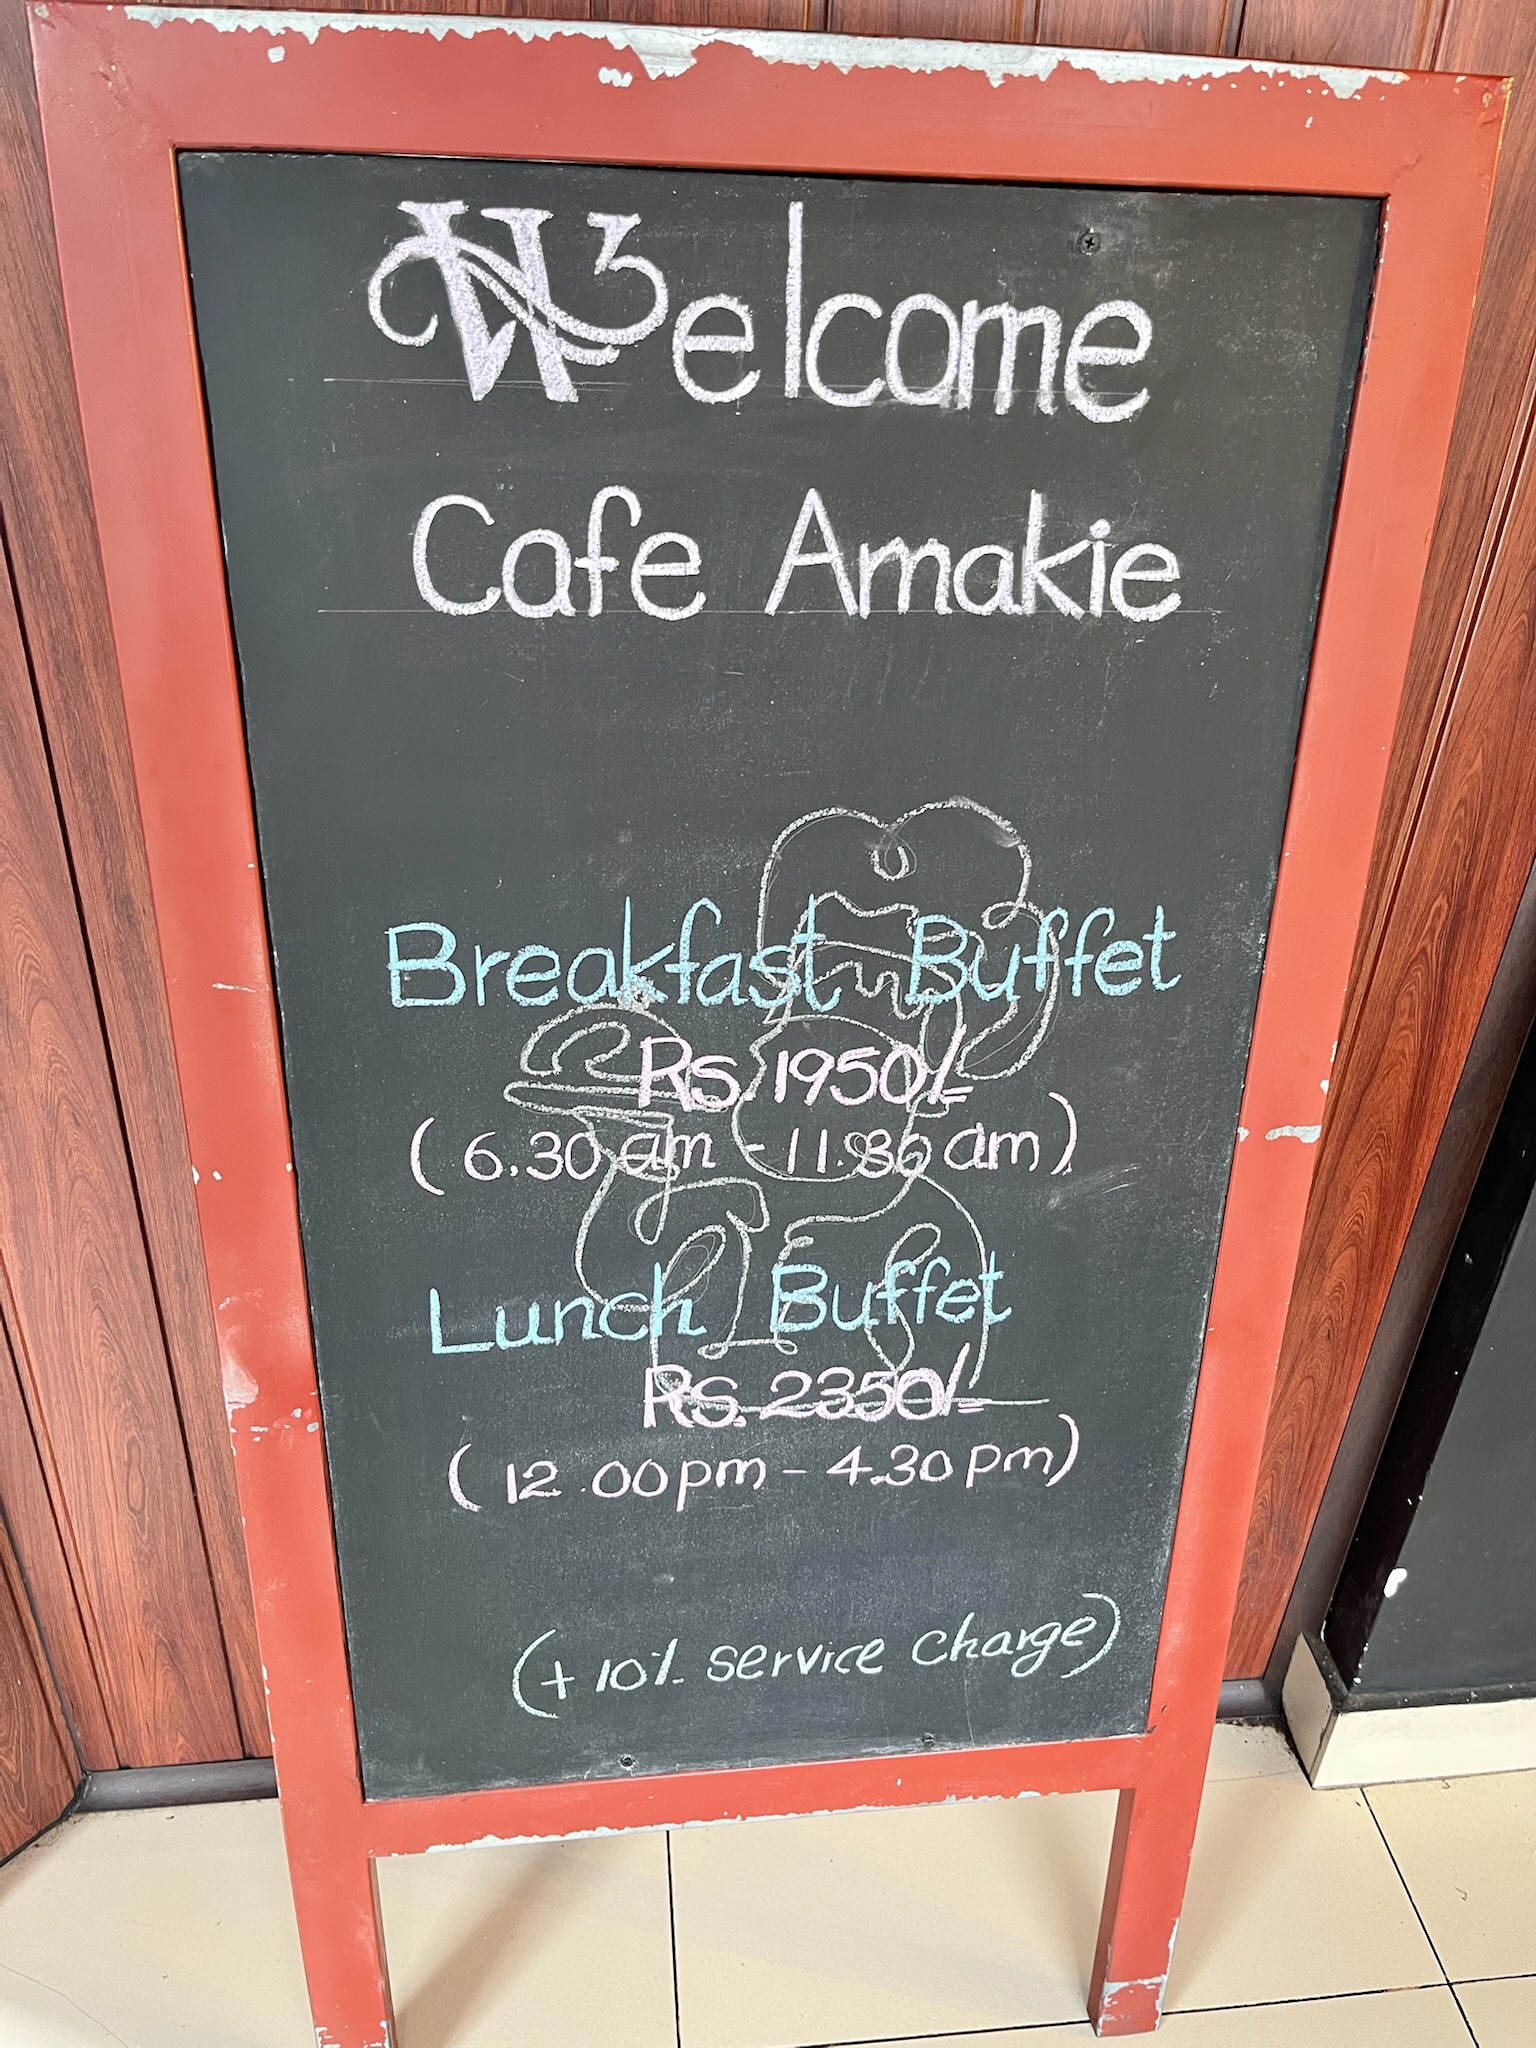 Welcome
Cafe Amakie
Breakfast Buffet
Rs. 1950/=
( 6.30 am - 11.30 am )
Lunch Buffet
Rs. 2350/=
( 12.00 pm - 4.30 pm )
(+ 10% service charge)